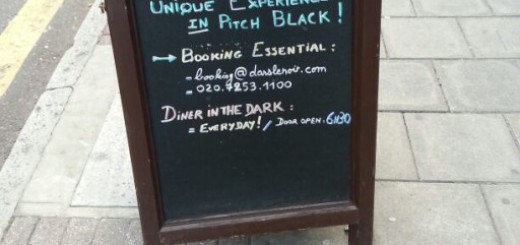 UNIQUE EXPERIENCE
IN PITCH BLACK!
→ BOOKING ESSENTIAL:
- booking@danslenoir.com
- 020.7253.1100
DINER IN THE DARK:
= EVERYDAY! / DOOR OPEN: 6h30